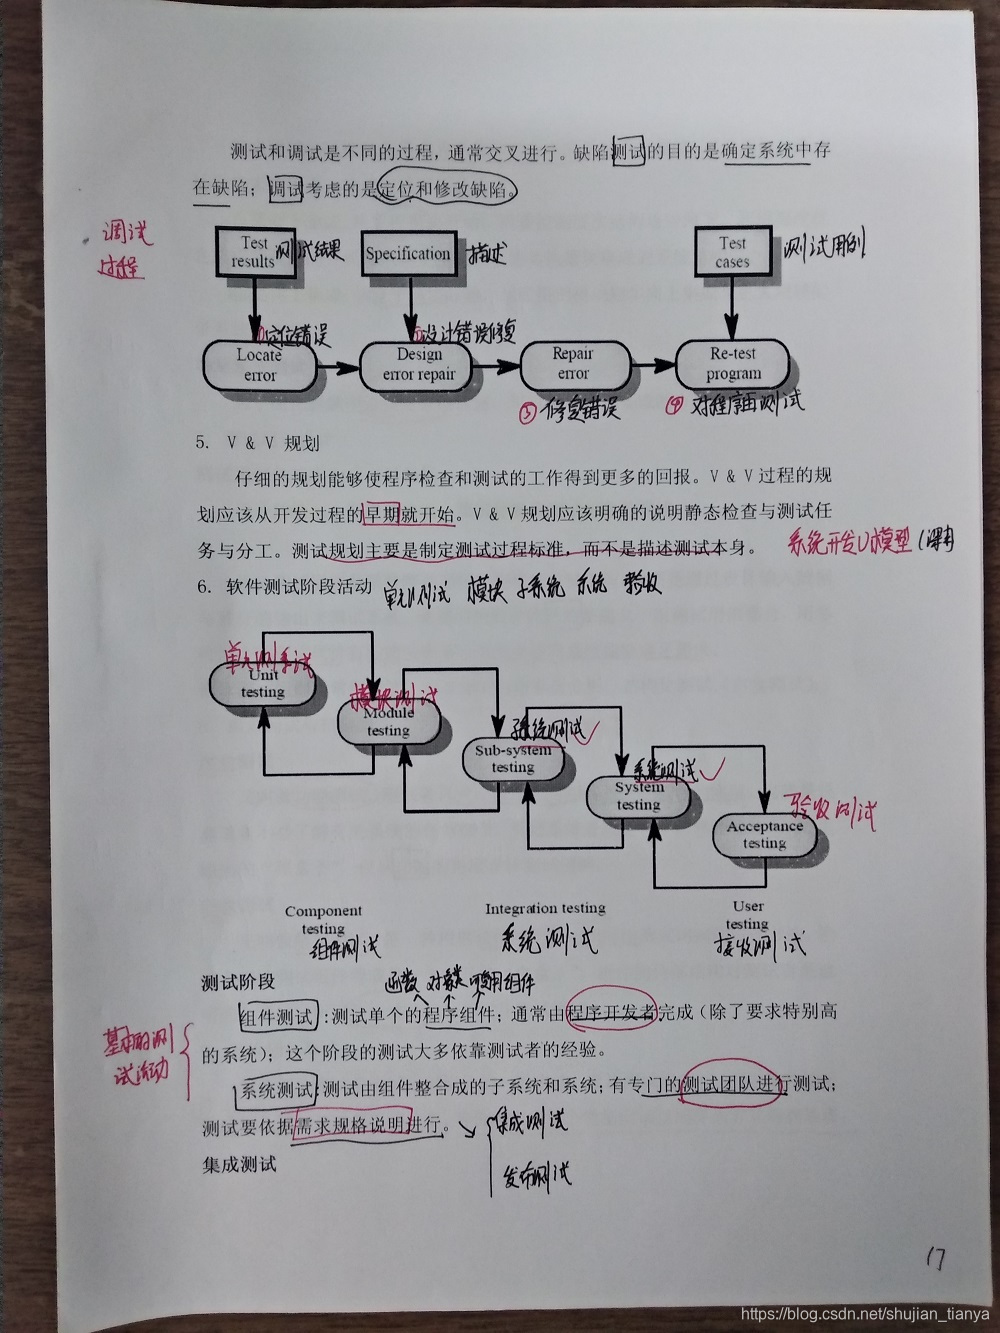 测试和调试是不同的过程，通常交叉进行。缺陷测试的目的是确定系统中存
在缺陷；调试考虑的是定位和修改缺陷。
调试
过程
Test
results
测试结果
Specification
描述
Test
cases
测试用例
①定位错误
②设计错误修复
Locate
error
Design
error repair
Repair
error
Re-test
program
③ 修复错误
④ 对程序再测试
5. V & V 规划
仔细的规划能够使程序检查和测试的工作得到更多的回报。V & V 过程的规
划应该从开发过程的早期就开始。V & V 规划应该明确的说明静态检查与测试任
务与分工。测试规划主要是制定测试过程标准，而不是描述测试本身。
系统开发U模型
6. 软件测试阶段活动
单元测试 模块 子系统 系统 验收
单元测试
Unit
testing
模块测试
Module
testing
子系统测试
Sub-system
testing
系统测试
System
testing
验收测试
Acceptance
testing
Component
testing
组件测试
Integration testing
系统测试
User
testing
接收测试
测试阶段
函数 对象类 可复用组件
组件测试:测试单个的程序组件；通常由程序开发者完成（除了要求特别高
的系统）；这个阶段的测试大多依靠测试者的经验。
基本的测
试活动
系统测试:测试由组件整合成的子系统和系统;有专门的测试团队进行测试；
测试要依据需求规格说明进行。
集成测试
发布测试
集成测试
17
https://blog.csdn.net/shujian_tianya